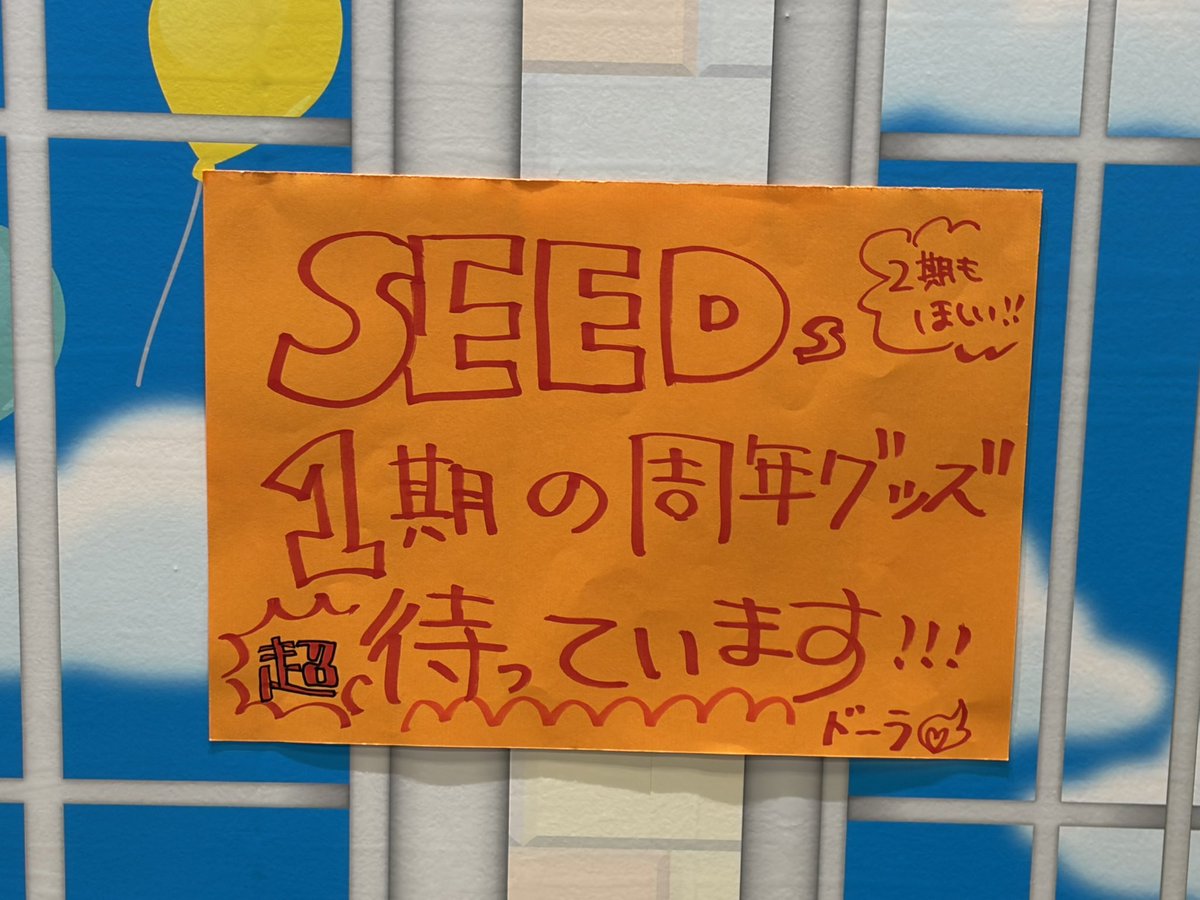 SEEDs
2期も
ほしい!!
1期の周年グッズ
超待っています!!!
ドーラ